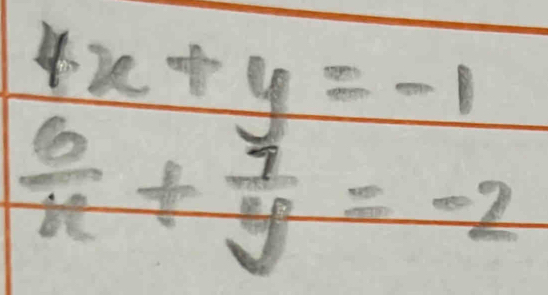 4x + y = -1
6/x + 7/y = -2